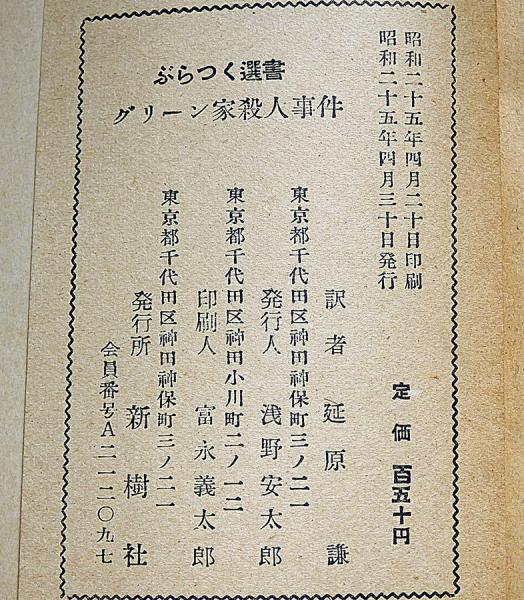 昭和二十五年四月二十日印刷
昭和二十五年四月三十日発行
定価 百五十円
ぶらつく選書
グリーン家殺人事件
訳者 延原謙
東京都千代田区神田神保町三ノ二一
発行人 浅野安太郎
東京都千代田区神田小川町二ノ一二
印刷人 富永義太郎
東京都千代田区神田神保町三ノ二一
発行所 新樹社
会員番号A二一二〇九七